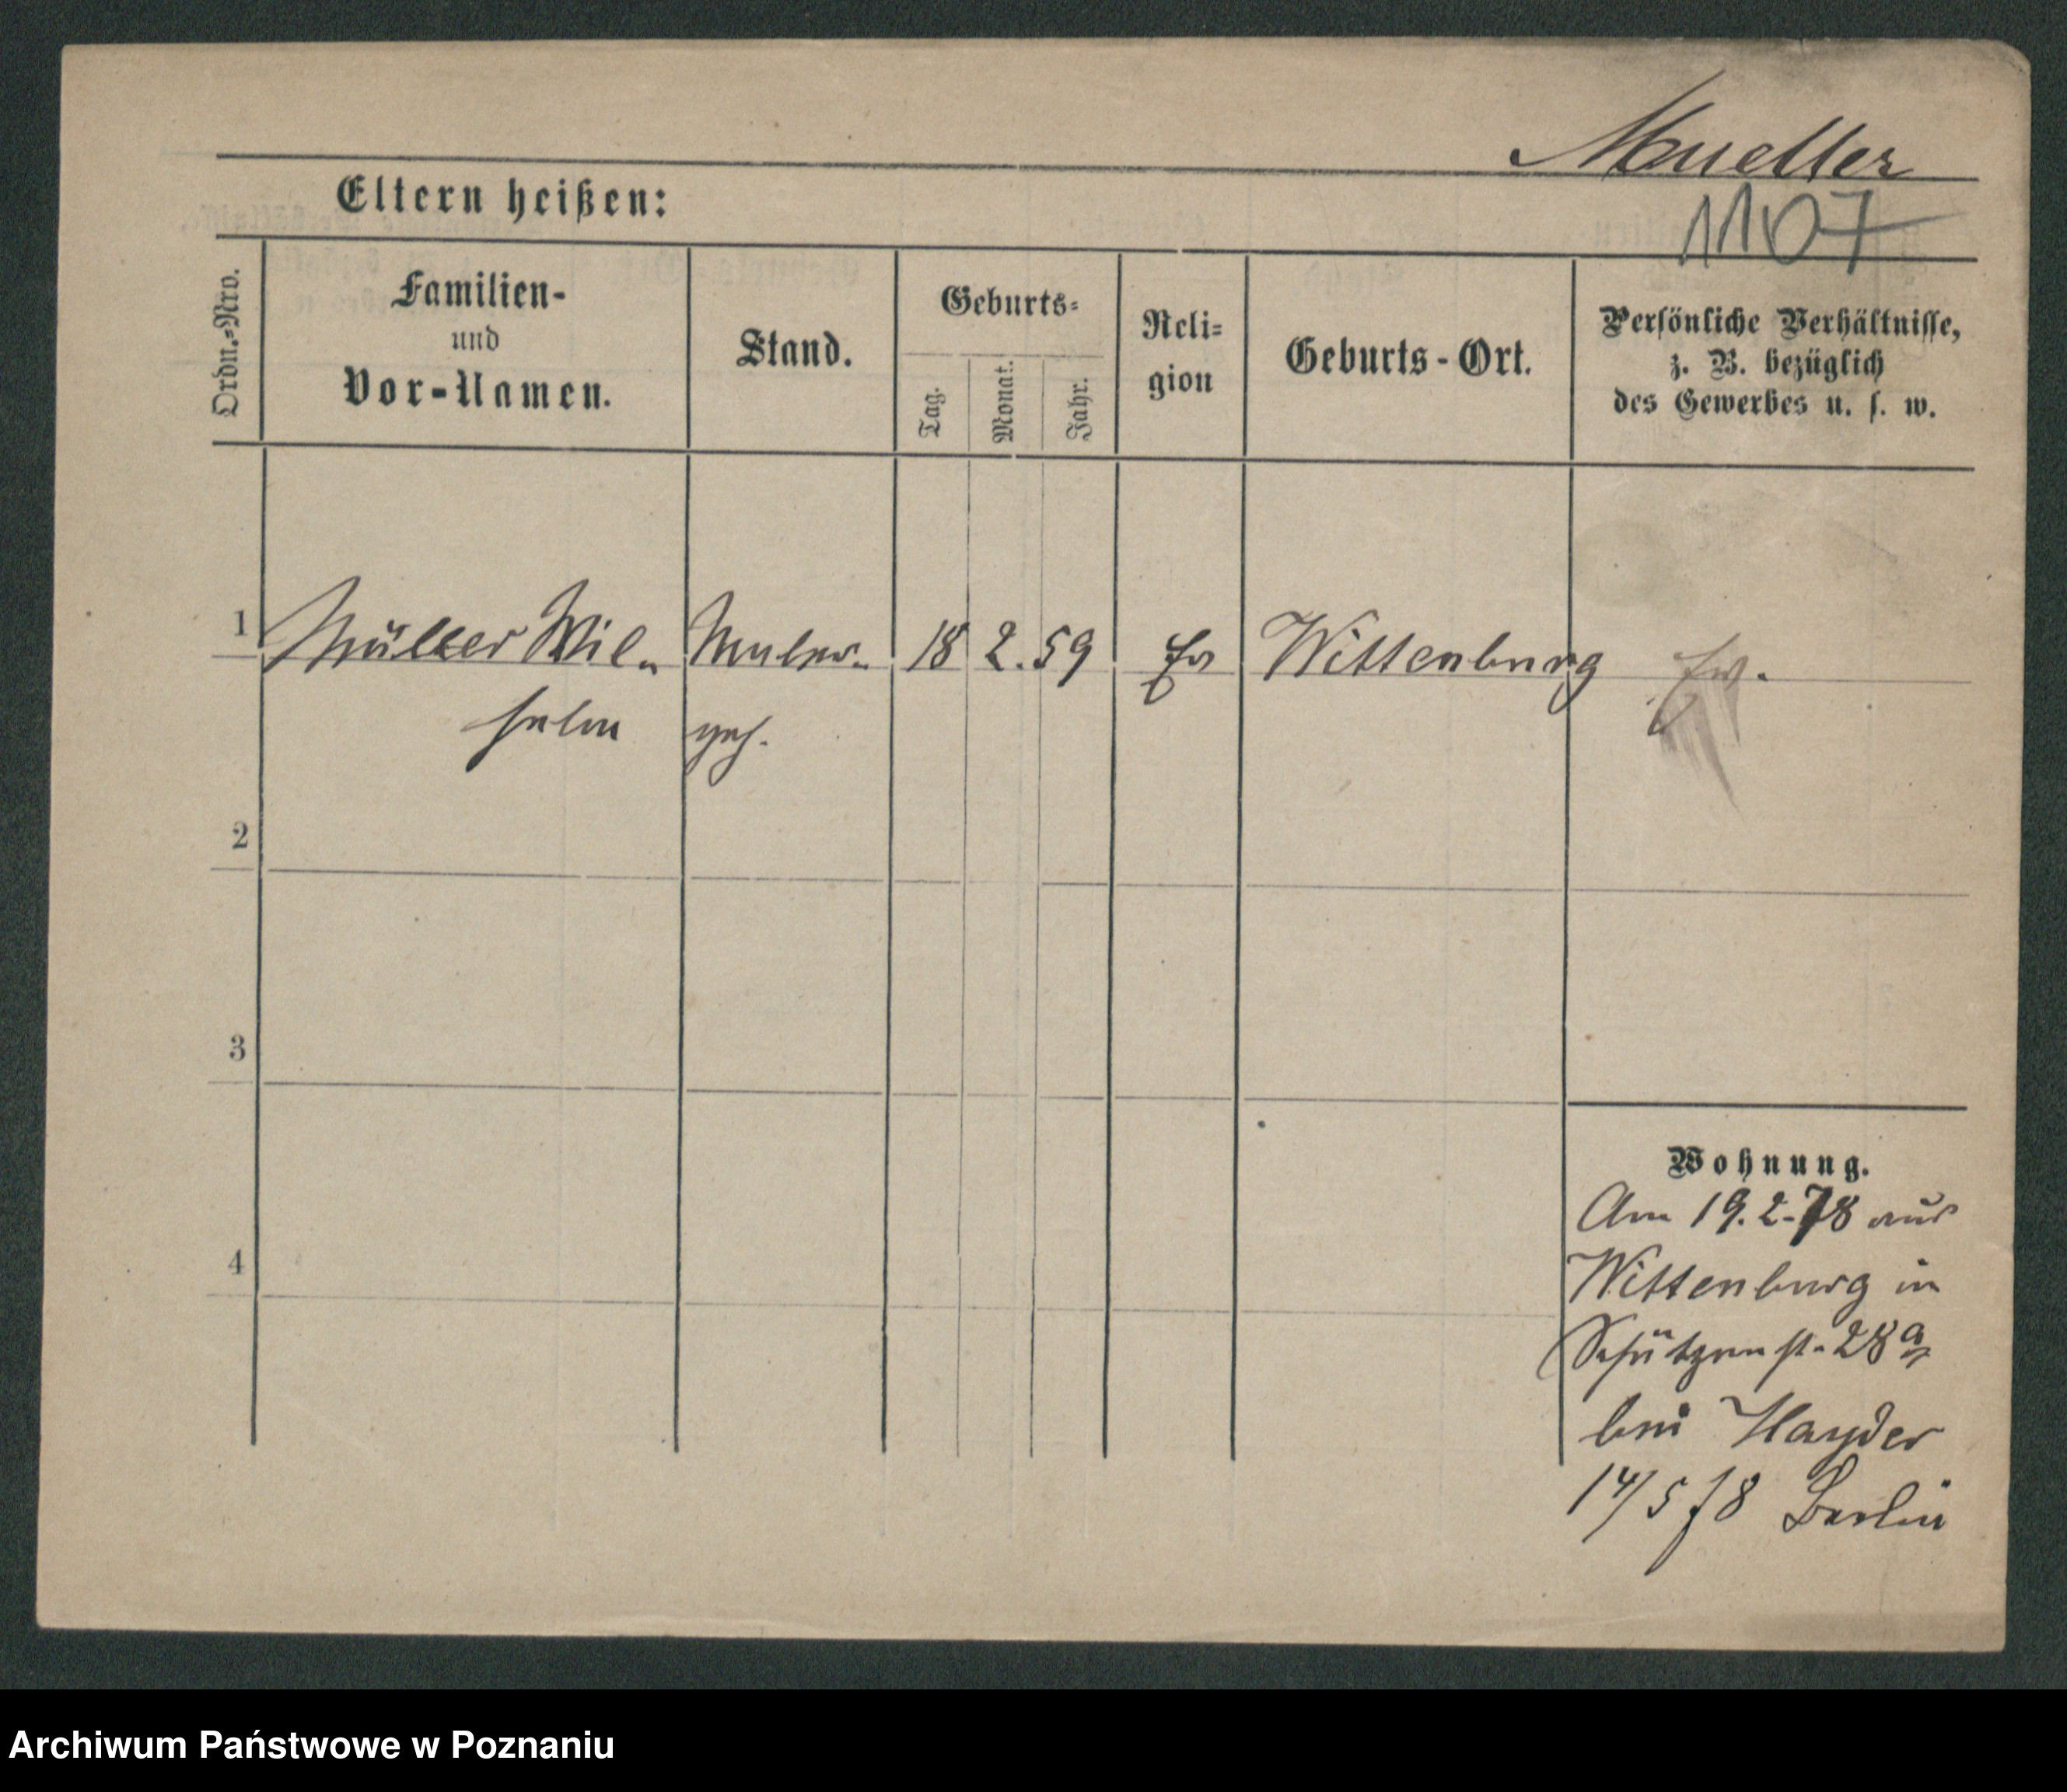 Mueller
Eltern heißen:
1107
Ordn.=Nro.
Familien-
und
Vor-Namen.
Stand.
Geburts=
Tag.
Monat.
Jahr.
Reli=
gion
Geburts-Ort.
Persönliche Verhältnisse,
z. B. bezüglich
des Gewerbes u. s. w.
1 Müller Wil- Maler- 18 2. 59 Ev Wittenburg
helm geh.
2
3
4
Wohnung.
Am 19. 2. 78 aus
Wittenburg in
Schützenst. 28a
bei Hayder
14/5 78 Berlin
Archiwum Państwowe w Poznaniu